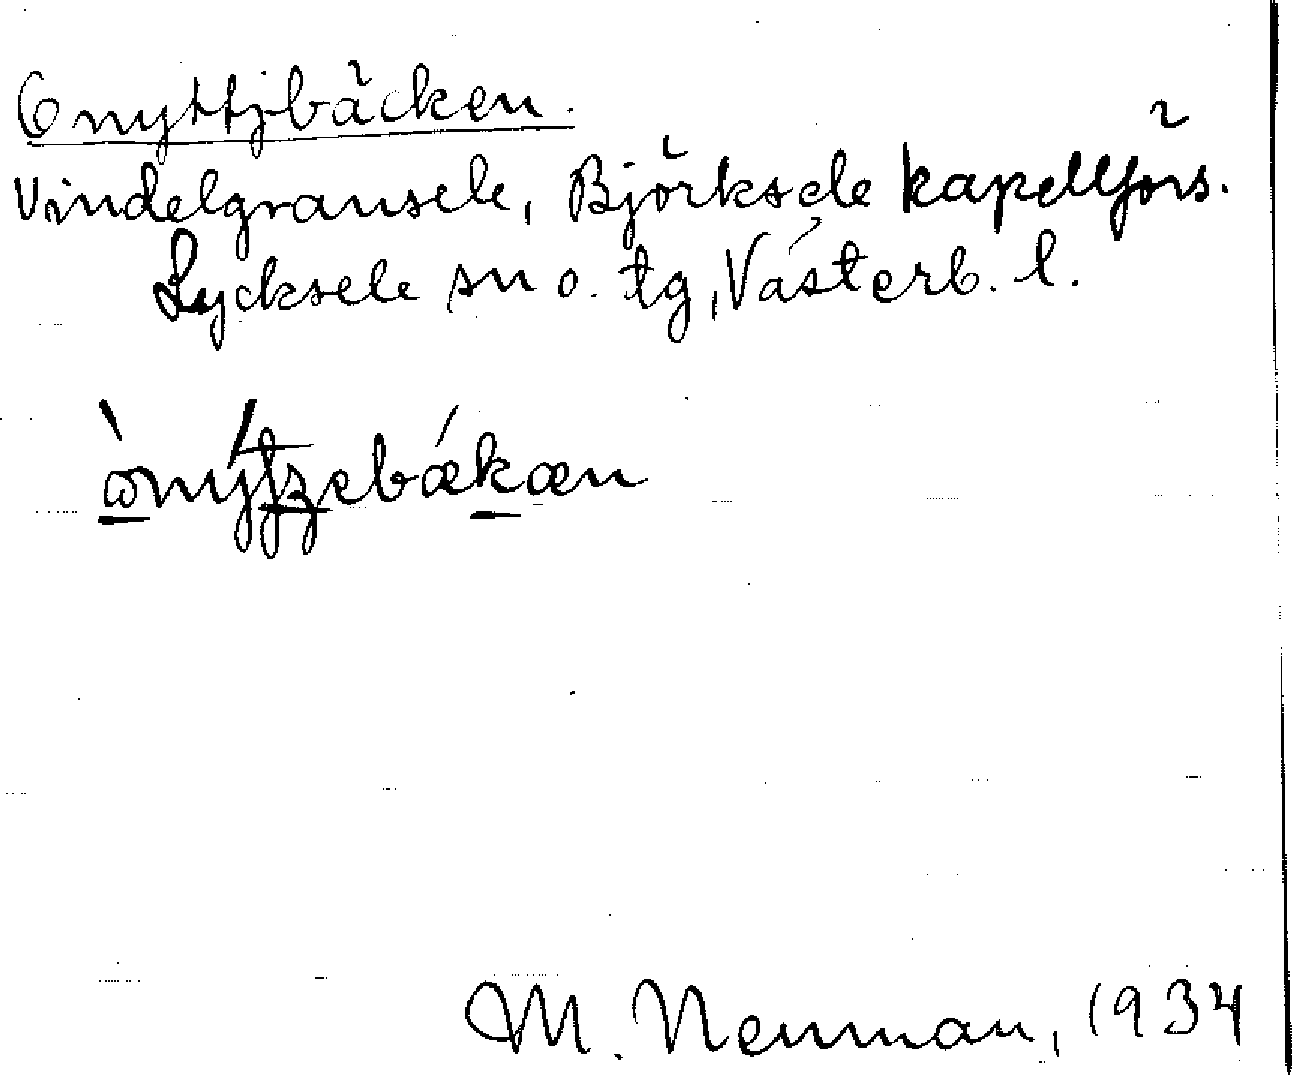 Onyttjbäcken.
Vindelgransele, Björksele kapellförs.
Lycksele sn o. tg, Västerb. l.
M. Nenman, 1934